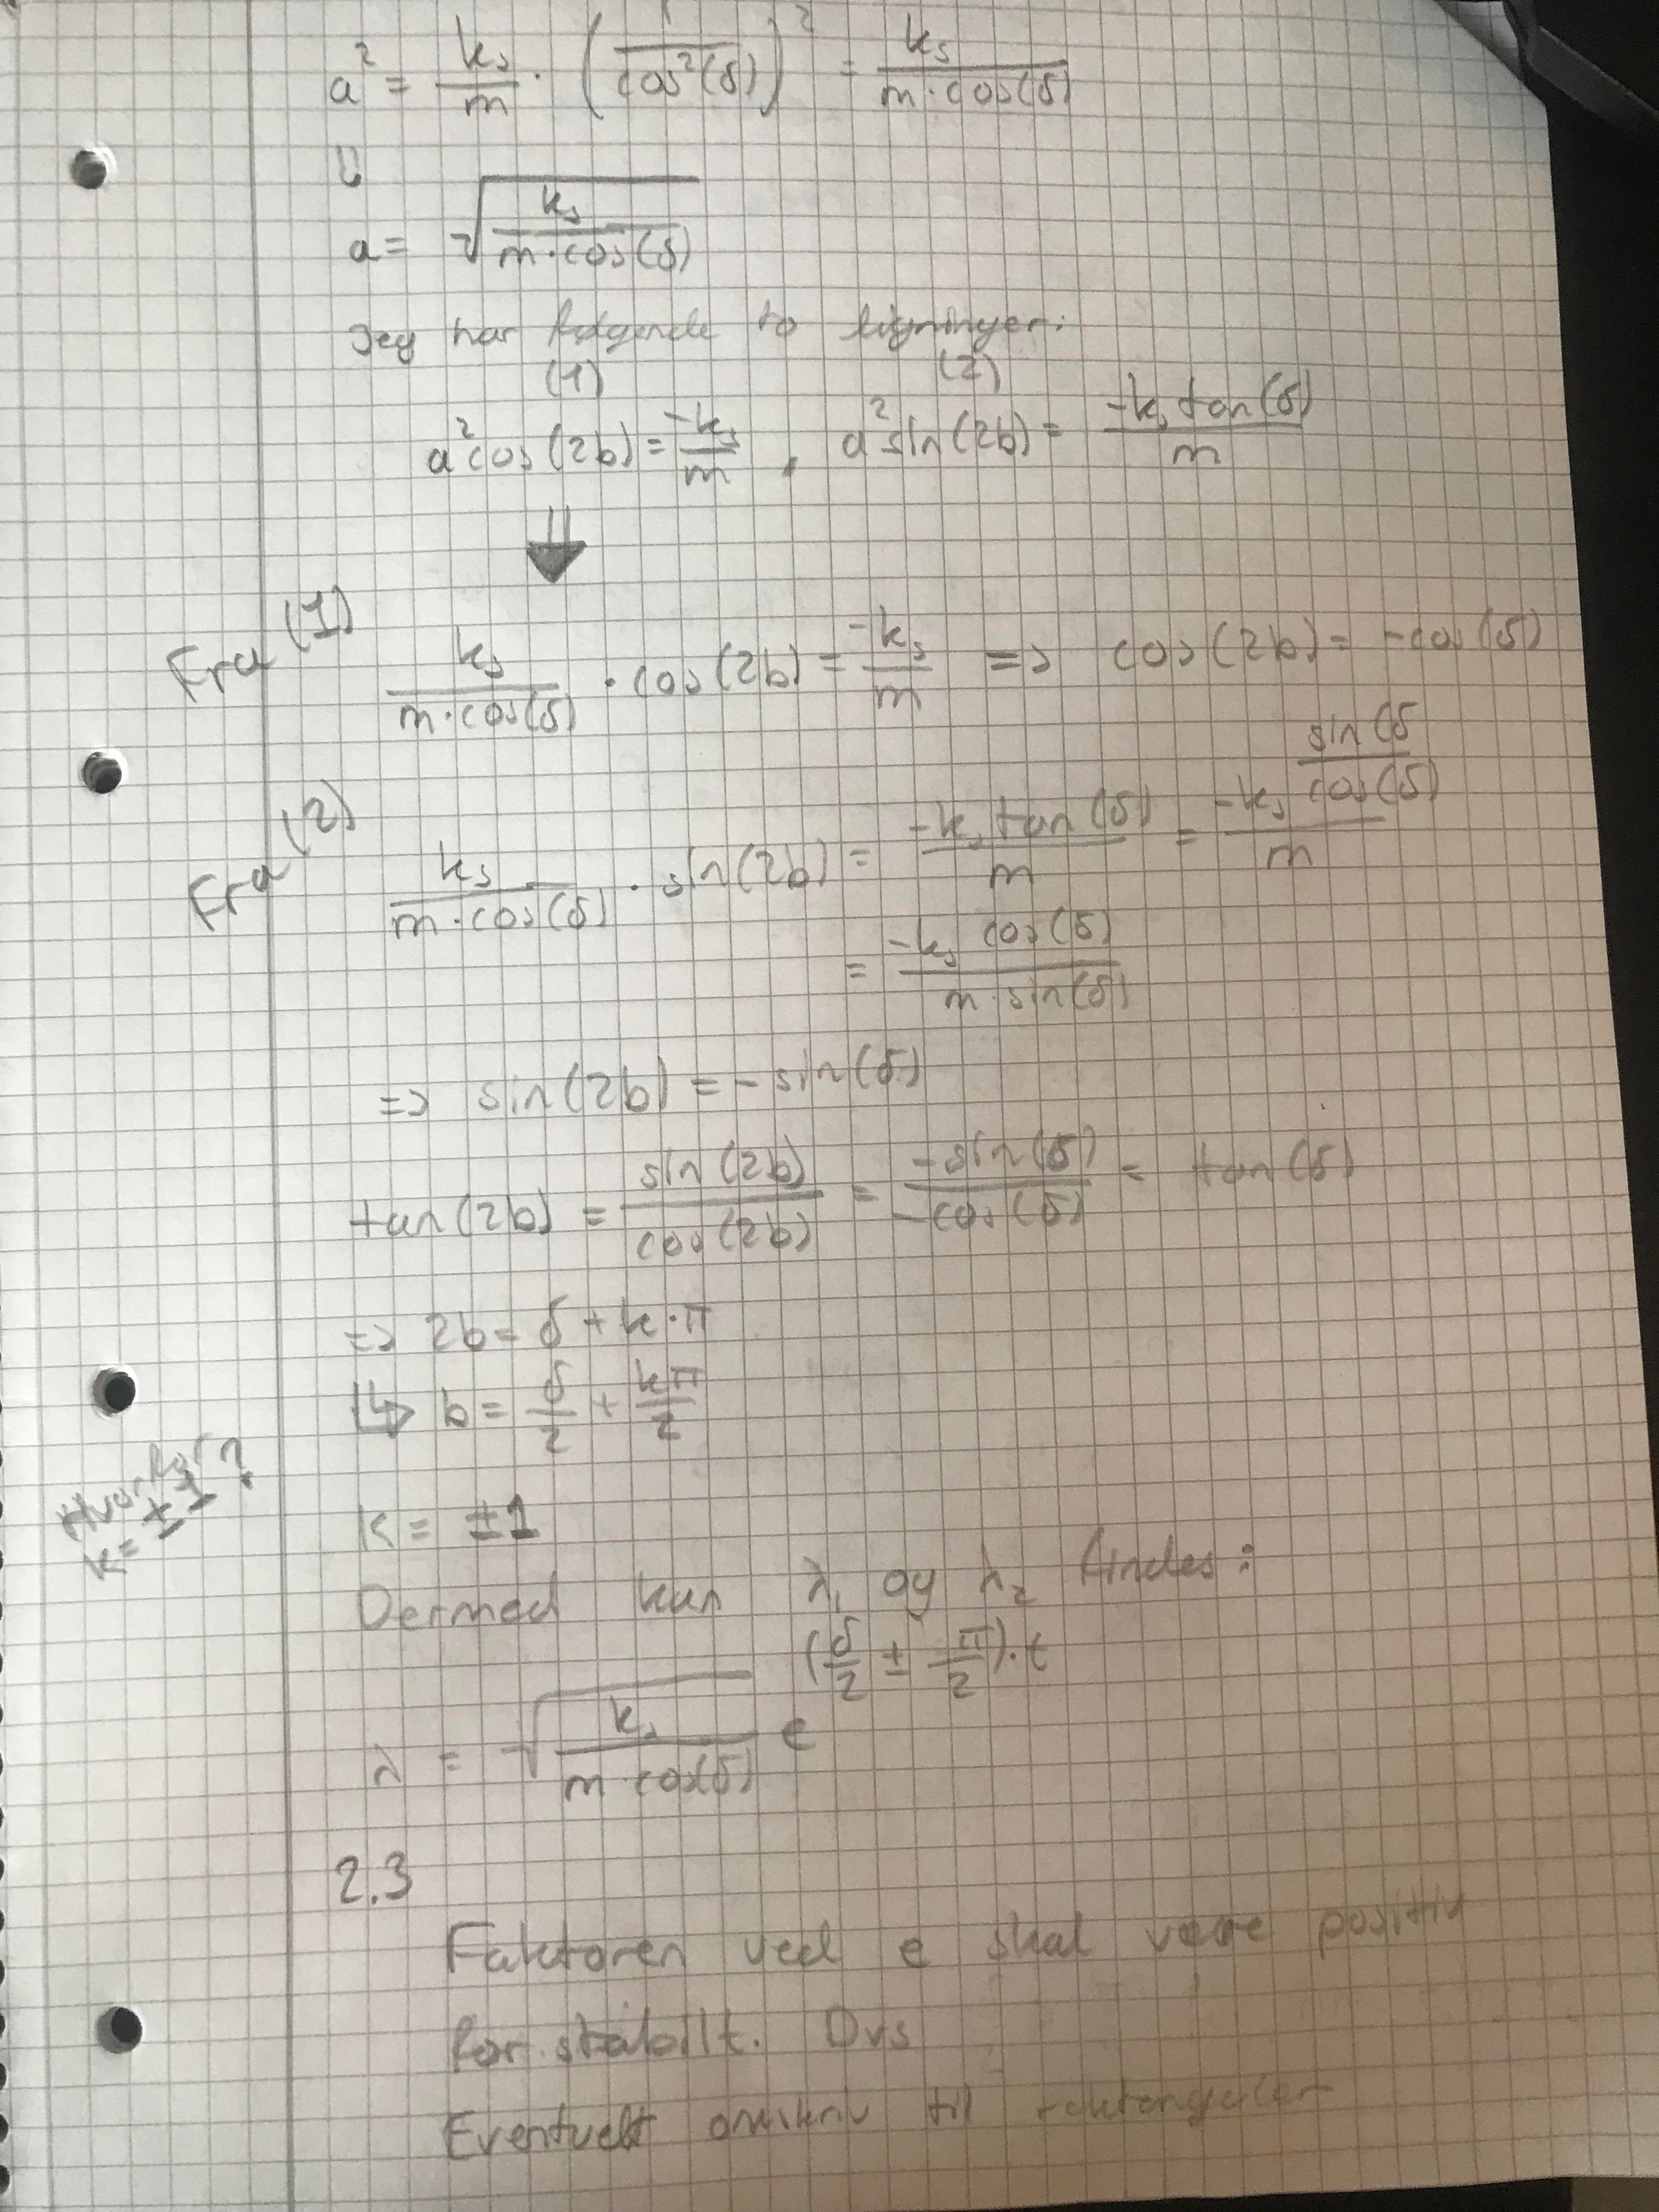 a² = k_s/m · (1/cos²(δ))² = k_s/(m·cos(δ))
⇓
a = √(k_s/(m·cos(δ)))
Jeg har følgende to ligninger:
(1) (2)
a²cos(2b) = -k_s/m , a²sin(2b) = -k_s tan(δ)/m
⇓
Fra (1) k_s/(m·cos(δ)) · cos(2b) = -k_s/m => cos(2b) = -cos(δ)
Fra (2) k_s/(m·cos(δ)) · sin(2b) = -k_s tan(δ)/m = -k_s (sin(δ/cos(δ))/m
= -k_s cos(δ)/(m·sin(δ))
=> sin(2b) = -sin(δ)
tan(2b) = sin(2b)/cos(2b) = -sin(δ)/-cos(δ) = tan(δ)
=> 2b = δ + k·π
↳ b = δ/2 + kπ/2
Hvorfor
k = ±1?
k = ±1
Dermed kan λ₁ og λ₂ findes:
λ = √(k_s/(m·cos(δ))) e^((δ/2 ± π/2)·i)
2.3
Faktoren ved e skal være positiv
for stabilt. Dvs
Eventuelt omskriv til rektangulær